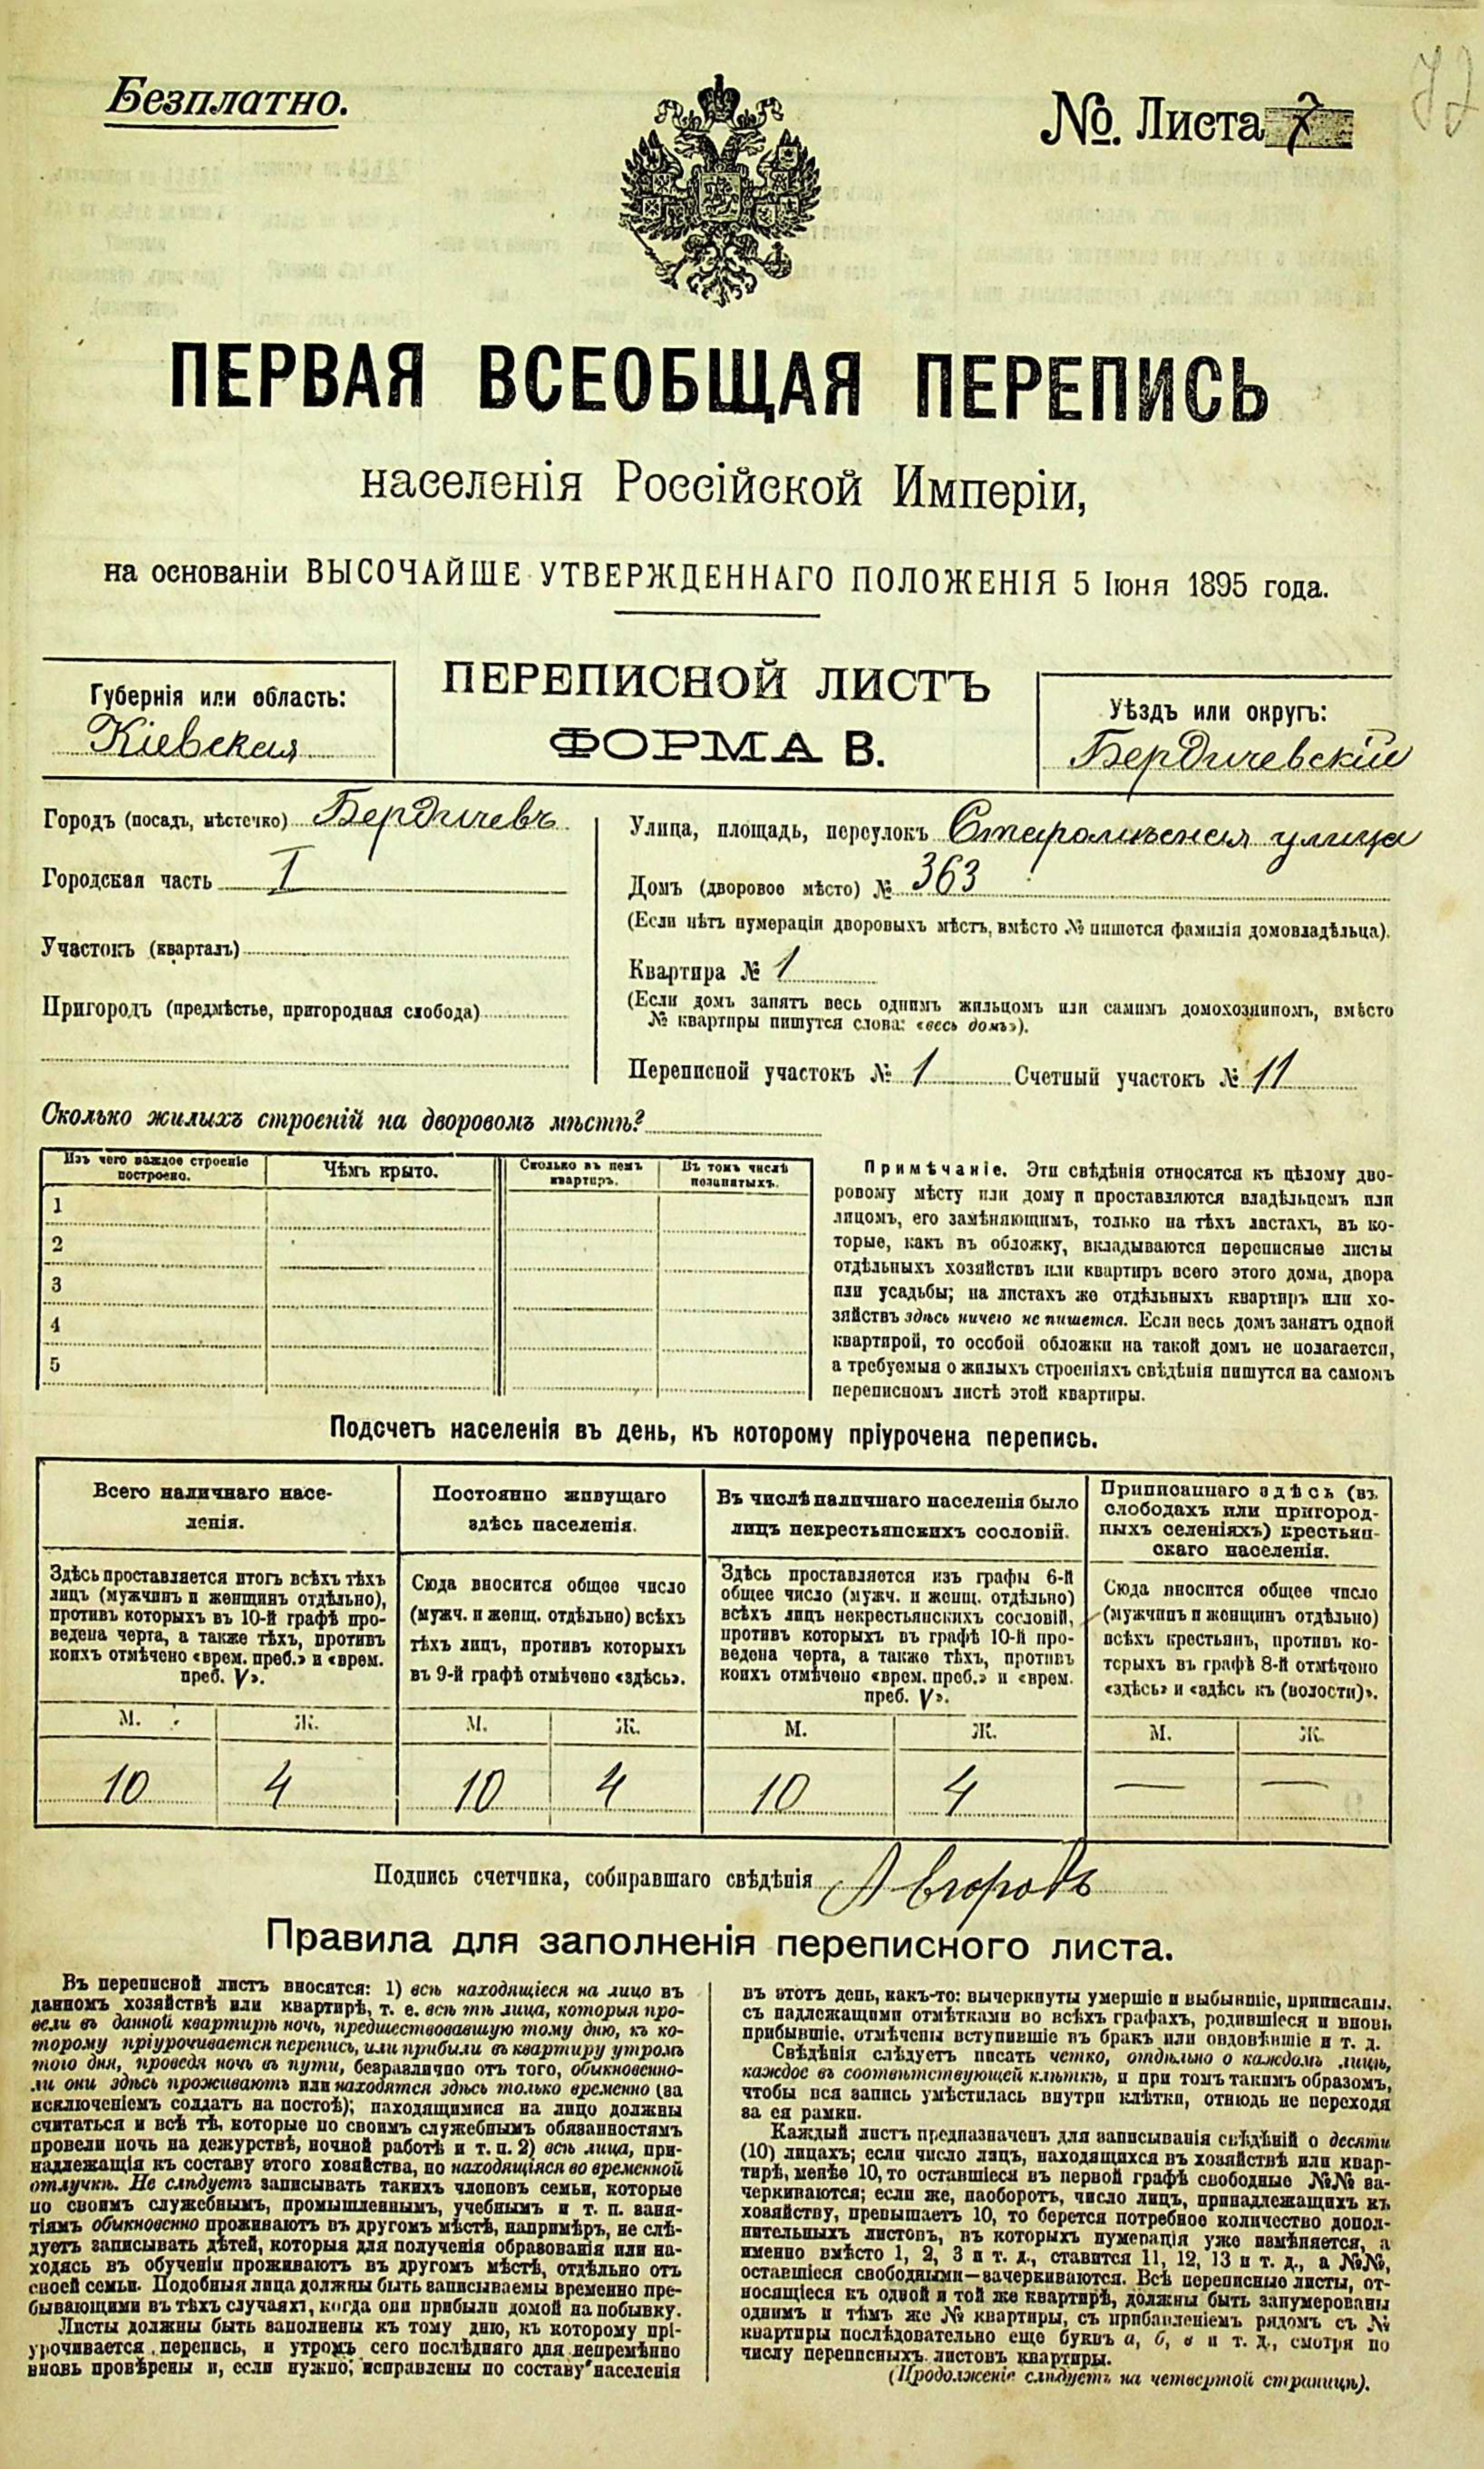 72
Безплатно.
№ Листа 7
ПЕРВАЯ ВСЕОБЩАЯ ПЕРЕПИСЬ
населенія Россійской Имперіи,
на основаніи ВЫСОЧАЙШЕ УТВЕРЖДЕННАГО ПОЛОЖЕНІЯ 5 Іюня 1895 года.
Губернія или область:
Кіевская
ПЕРЕПИСНОЙ ЛИСТЪ
ФОРМА В.
Уѣздъ или округъ:
Бердичевскій
Городъ (посадъ, мѣстечко) Бердичевъ
Городская часть I
Участокъ (кварталъ)
Пригородъ (предмѣстье, пригородная слобода)
Улица, площадь, переулокъ улица
Домъ (дворовое мѣсто) № 363
(Если нѣтъ нумераціи дворовыхъ мѣстъ, вмѣсто № пишется фамилія домовладѣльца).
Квартира № 1
(Если домъ занятъ весь однимъ жильцомъ или самимъ домохозяиномъ, вмѣсто
№ квартиры пишутся слова: «весь домъ»).
Переписной участокъ № 1 Счетный участокъ № 11
Сколько жилыхъ строеній на дворовомъ мѣстѣ?
Изъ чего каждое строеніе
построено.
Чѣмъ крыто.
Сколько въ немъ
квартиръ.
Въ томъ числѣ
незанятыхъ.
1
2
3
4
5
Примѣчаніе. Эти свѣдѣнія относятся къ цѣлому дво-
ровому мѣсту или дому и проставляются владѣльцемъ или
лицомъ, его замѣняющимъ, только на тѣхъ листахъ, въ ко-
торые, какъ въ обложку, вкладываются переписные листы
отдѣльныхъ хозяйствъ или квартиръ всего этого дома, двора
или усадьбы; на листахъ же отдѣльныхъ квартиръ или хо-
зяйствъ здѣсь ничего не пишется. Если весь домъ занятъ одной
квартирой, то особой обложки на такой домъ не полагается,
а требуемыя о жилыхъ строеніяхъ свѣдѣнія пишутся на самомъ
переписномъ листѣ этой квартиры.
Подсчетъ населенія въ день, къ которому пріурочена перепись.
Всего наличнаго насе-
ленія.
Здѣсь проставляется итогъ всѣхъ тѣхъ
лицъ (мужчинъ и женщинъ отдѣльно),
противъ которыхъ въ 10-й графѣ про-
ведена черта, а также тѣхъ, противъ
коихъ отмѣчено «врем. преб.» и «врем.
преб. V».
М. Ж.
10 4
Постоянно живущаго
здѣсь населенія.
Сюда вносится общее число
(мужч. и женщ. отдѣльно) всѣхъ
тѣхъ лицъ, противъ которыхъ
въ 9-й графѣ отмѣчено «здѣсь».
М. Ж.
10 4
Въ числѣ наличнаго населенія было
лицъ некрестьянскихъ сословій.
Здѣсь проставляется изъ графы 6-й
общее число (мужч. и женщ. отдѣльно)
всѣхъ лицъ некрестьянскихъ сословій,
противъ которыхъ въ графѣ 10-й про-
ведена черта, а также тѣхъ, противъ
коихъ отмѣчено «врем. преб.» и «врем.
преб. V».
М. Ж.
10 4
Приписаннаго здѣсь (въ
слободахъ или пригород-
ныхъ селеніяхъ) крестьян-
скаго населенія.
Сюда вносится общее число
(мужчинъ и женщинъ отдѣльно)
всѣхъ крестьянъ, противъ ко-
торыхъ въ графѣ 8-й отмѣчено
«здѣсь» и «здѣсь къ (волости)».
М. Ж.
— —
Подпись счетчика, собиравшаго свѣдѣнія
Правила для заполненія переписного листа.
Въ переписной листъ вносятся: 1) всѣ находящіеся на лицо въ
данномъ хозяйствѣ или квартирѣ, т. е. всѣ тѣ лица, которыя про-
вели въ данной квартирѣ ночь, предшествовавшую тому дню, къ ко-
торому пріурочивается перепись, или прибыли въ квартиру утромъ
того дня, проведя ночь въ пути, безразлично отъ того, обыкновенно-
ли они здѣсь проживаютъ или находятся здѣсь только временно (за
исключеніемъ солдатъ на постоѣ); находящимися на лицо должны
считаться и всѣ тѣ, которые по своимъ служебнымъ обязанностямъ
провели ночь на дежурствѣ, ночной работѣ и т. п. 2) всѣ лица, при-
надлежащія къ составу этого хозяйства, но находящіяся во временной
отлучкѣ. Не слѣдуетъ записывать такихъ членовъ семьи, которые
по своимъ служебнымъ, промышленнымъ, учебнымъ и т. п. заня-
тіямъ обыкновенно проживаютъ въ другомъ мѣстѣ, напримѣръ, не слѣ-
дуетъ записывать дѣтей, которыя для полученія образованія или на-
ходясь въ обученіи проживаютъ въ другомъ мѣстѣ, отдѣльно отъ
своей семьи. Подобныя лица должны быть записываемы временно пре-
бывающими въ тѣхъ случаяхъ, когда они прибыли домой на побывку.
Листы должны быть заполнены къ тому дню, къ которому прі-
урочивается перепись, и утромъ сего послѣдняго дня непремѣнно
вновь провѣрены и, если нужно, исправлены по составу населенія
въ этотъ день, какъ-то: вычеркнуты умершіе и выбывшіе, приписаны,
съ надлежащими отмѣтками во всѣхъ графахъ, родившіеся и вновь
прибывшіе, отмѣчены вступившіе въ бракъ или овдовѣвшіе и т. д.
Свѣдѣнія слѣдуетъ писать четко, отдѣльно о каждомъ лицѣ,
каждое въ соотвѣтствующей клѣткѣ, и при томъ такимъ образомъ,
чтобы вся запись умѣстилась внутри клѣтки, отнюдь не переходя
за ея рамки.
Каждый листъ предназначенъ для записыванія свѣдѣній о десяти
(10) лицахъ; если число лицъ, находящихся въ хозяйствѣ или квар-
тирѣ, менѣе 10, то оставшіеся въ первой графѣ свободные №№ за-
черкиваются; если же, наоборотъ, число лицъ, принадлежащихъ къ
хозяйству, превышаетъ 10, то берется потребное количество допол-
нительныхъ листовъ, въ которыхъ нумерація уже измѣняется, а
именно вмѣсто 1, 2, 3 и т. д., ставится 11, 12, 13 и т. д., а №№,
оставшіеся свободными—зачеркиваются. Всѣ переписные листы, от-
носящіеся къ одной и той же квартирѣ, должны быть занумерованы
однимъ и тѣмъ же № квартиры, съ прибавленіемъ рядомъ съ №
квартиры послѣдовательно еще буквъ а, б, в и т. д., смотря по
числу переписныхъ листовъ квартиры.
(Продолженіе слѣдуетъ на четвертой страницѣ).